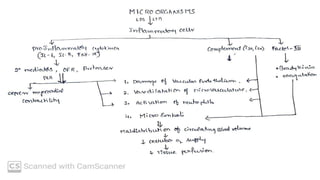 MICRO ORGANISMS
LPS LTA
Inflammatory cells
proinflammatory cytokines
(IL-1, IL-8, TNF-α)
Complement (C3a, C5a)
Factor-XII
2° mediators, OFR, Proteases
PAF
↑Bradykinin
+ coagulation
1. Damage of Vascular Endothelium.
2. Vasodilatation of microvasculature.
3. Activation of neutrophils
4. Micro thrombi
impaired
contractility
Maldistribution of circulating blood volume
↓ cellular O₂ supply
↓ tissue perfusion
CS Scanned with CamScanner